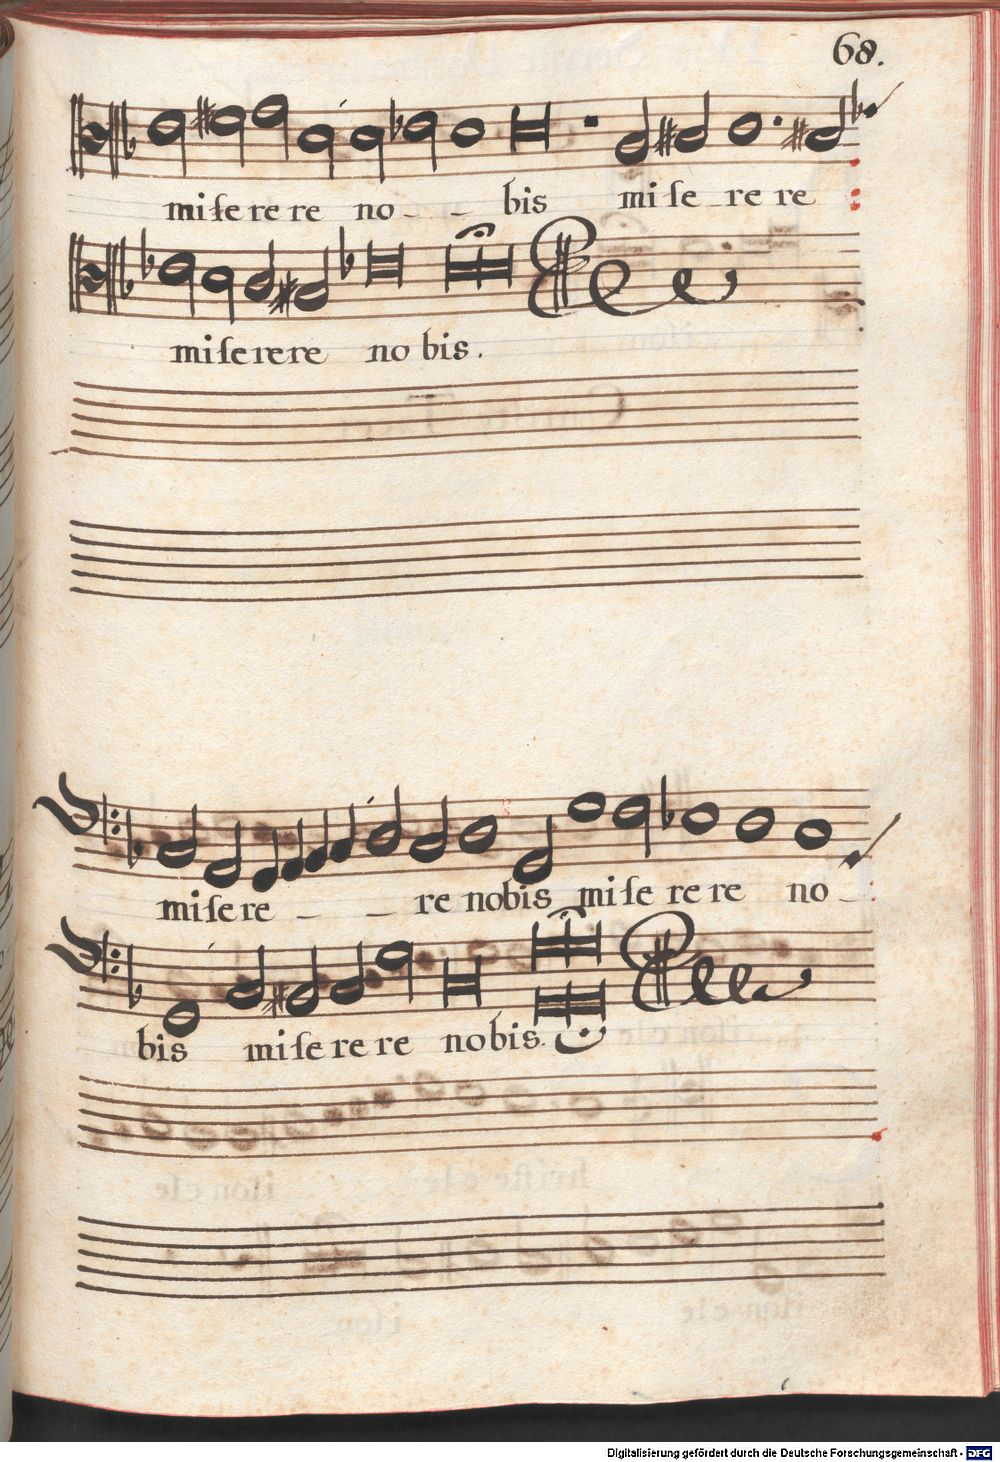 68.
miſerere no - - bis miſe - rere
miſerere nobis.
miſere - - re nobis miſerere no -
bis miſerere nobis.
Digitalisierung gefördert durch die Deutsche Forschungsgemeinschaft - DFG